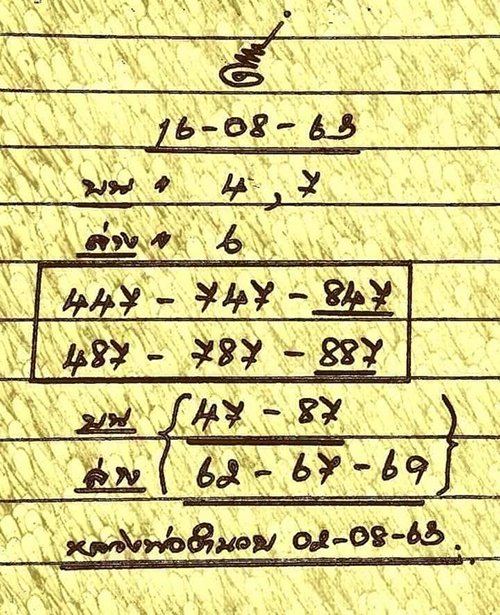 16-08-63
บน 4, 7
ล่าง 6
447 - 747 - 847
487 - 787 - 887
บน 47 - 87
ล่าง 62 - 67 - 69
หลวงพ่ออำนวย 02-08-63.